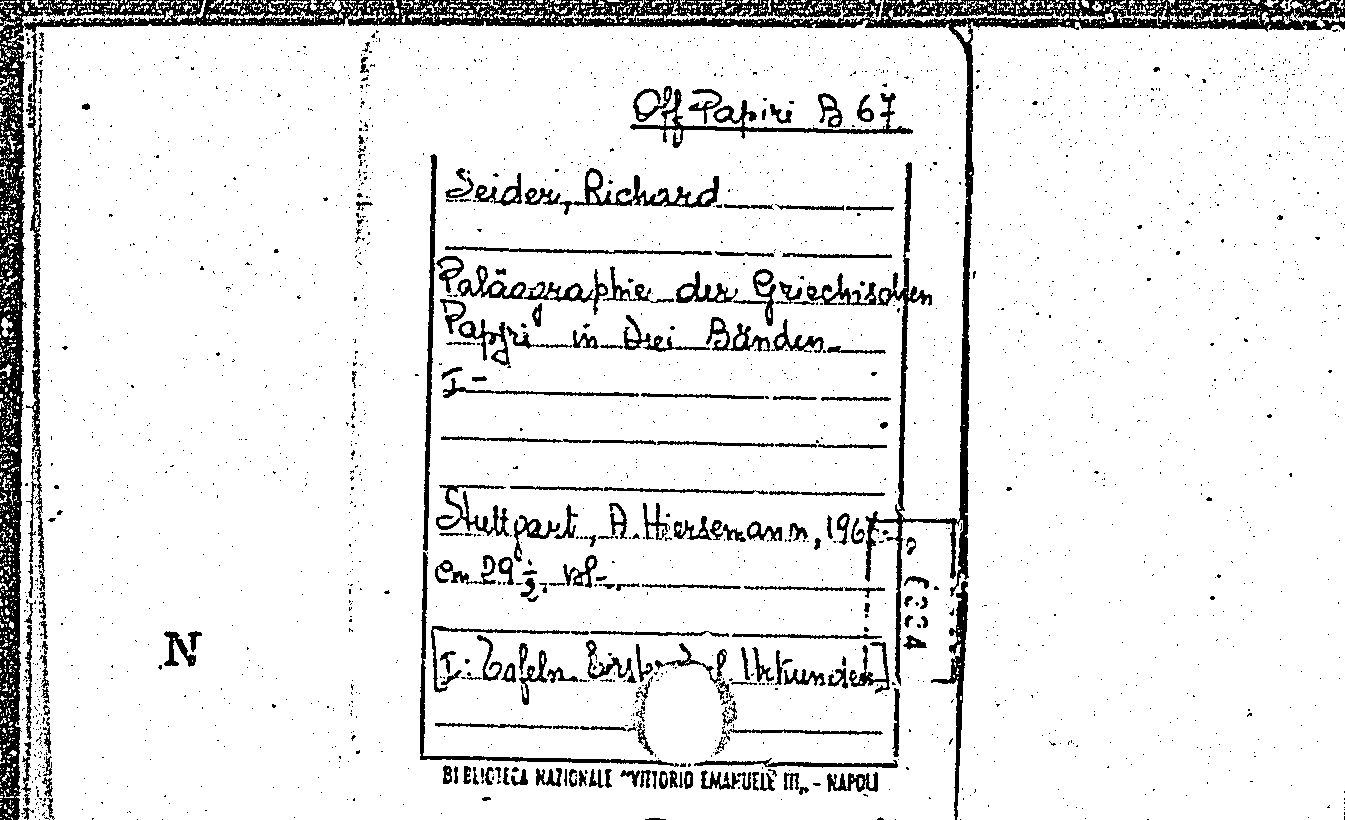 Off Papiri B 67
Seider, Richard
Paläographie der Griechischen
Papyri in Drei Bänden_
I-
Stuttgart, A. Hiersemann, 1967
cm 29 ½. vol-.
[I: Tafeln. Urkunden]
N
BIBLIOTECA NAZIONALE "VITTORIO EMANUELE III„ - NAPOLI